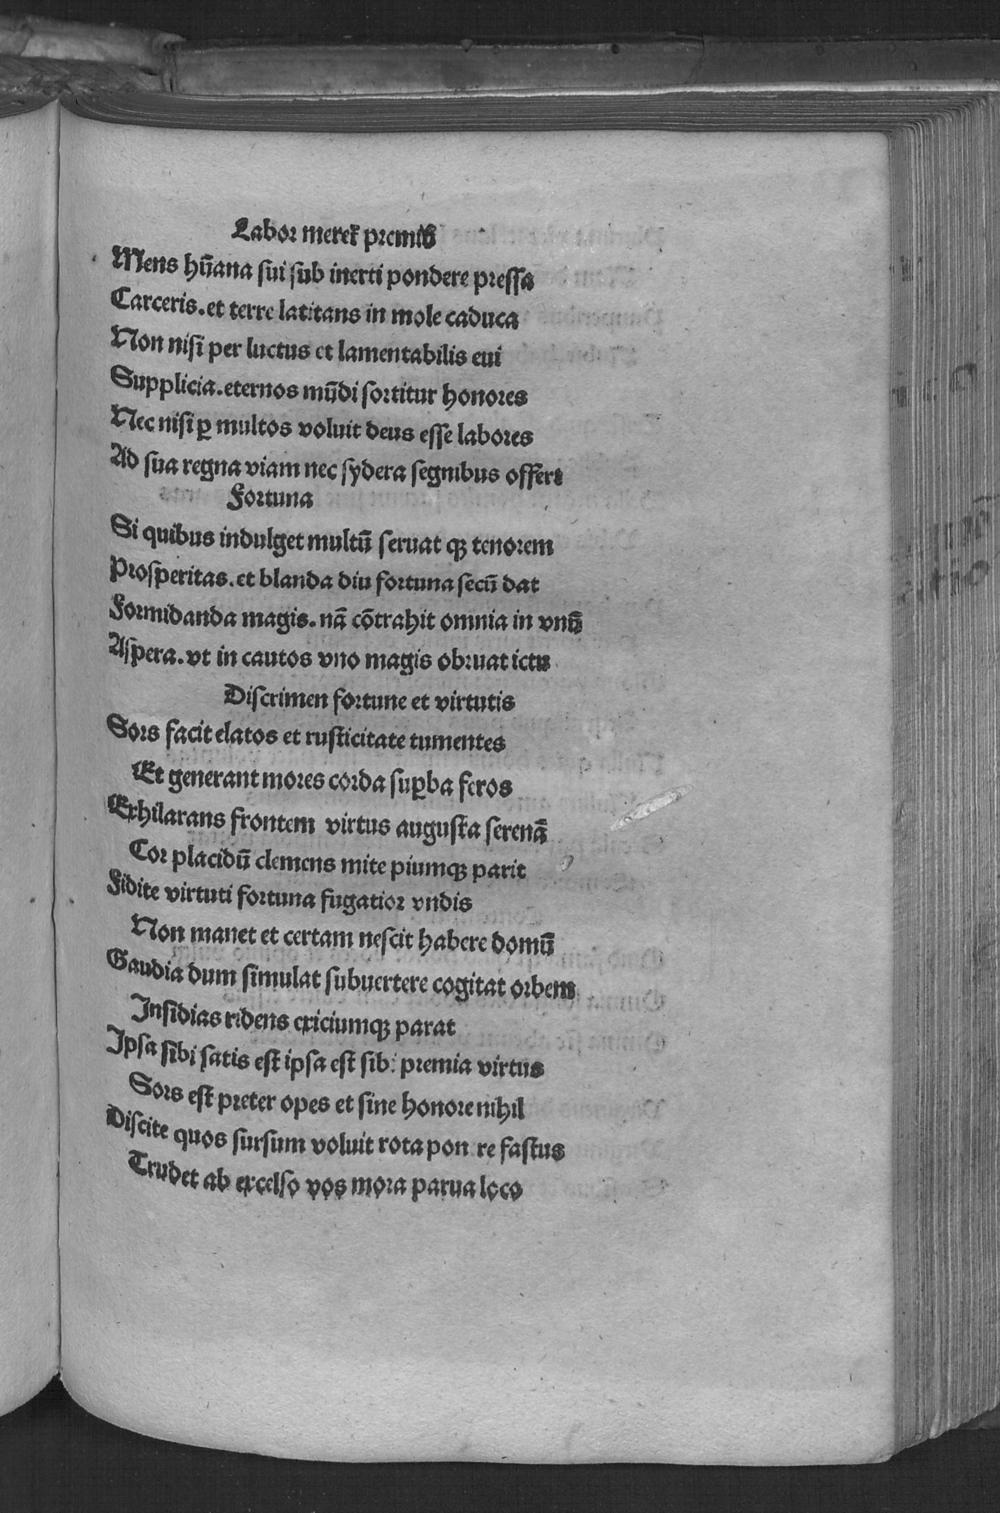 Labor meret᷑ premiū
Mens hūana sui sub inerti pondere pressa
Carceris. et terre latitans in mole caduca
Non nisi per luctus et lamentabilis eui
Supplicia. eternos mūdi sortitur honores
Nec nisi ꝑ multos voluit deus esse labores
Ad sua regna viam nec sydera segnibus offert
Fortuna
Si quibus indulget multū seruat qꝫ tenorem
Prosperitas. et blanda diu fortuna secū dat
Formidanda magis. nā cōtrahit omnia in vnū
Aspera. vt in cautos vno magis obruat ictu
Discrimen fortune et virtutis
Sors facit elatos et rusticitate tumentes
Et generant mores corda suꝑba feros
Exhilarans frontem virtus augusta serenā
Cor placidū clemens mite piumqꝫ parit
Fidite virtuti fortuna fugatior vndis
Non manet et certam nescit habere domū
Gaudia dum simulat subuertere cogitat orbem
Insidias ridens exiciumqꝫ parat
Ipsa sibi satis est ipsa est sibi premia virtus
Sors est preter opes et sine honore nihil
Discite quos sursum voluit rota pon re fastus
Trudet ab excelso vos mora parua loco